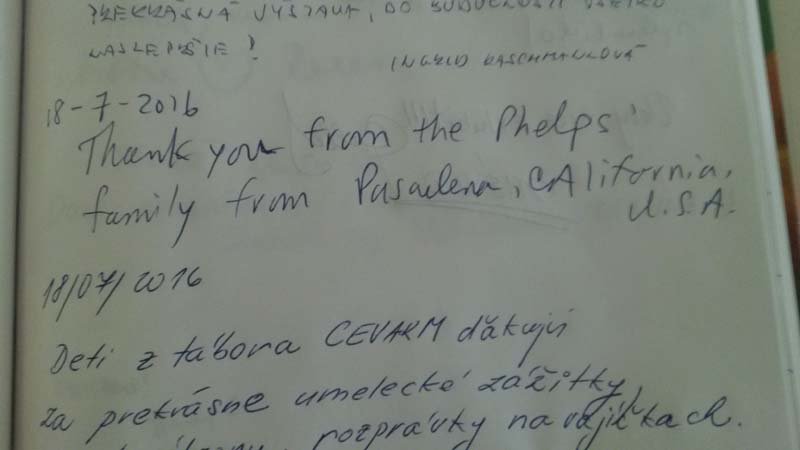 PREKRÁSNÁ VÝSTAVA, DO BUDÚCNOSTI VŠETKO
NAJLEPŠIE!
INGRID
18-7-2016
Thank you from the Phelps'
family from Pasadena, CAlifornia,
U.S.A.
18/07/2016
Deti z tábora CEVARM ďakujú
za prekrásne umelecké zážitky,
rozprávky na vajíčkach.